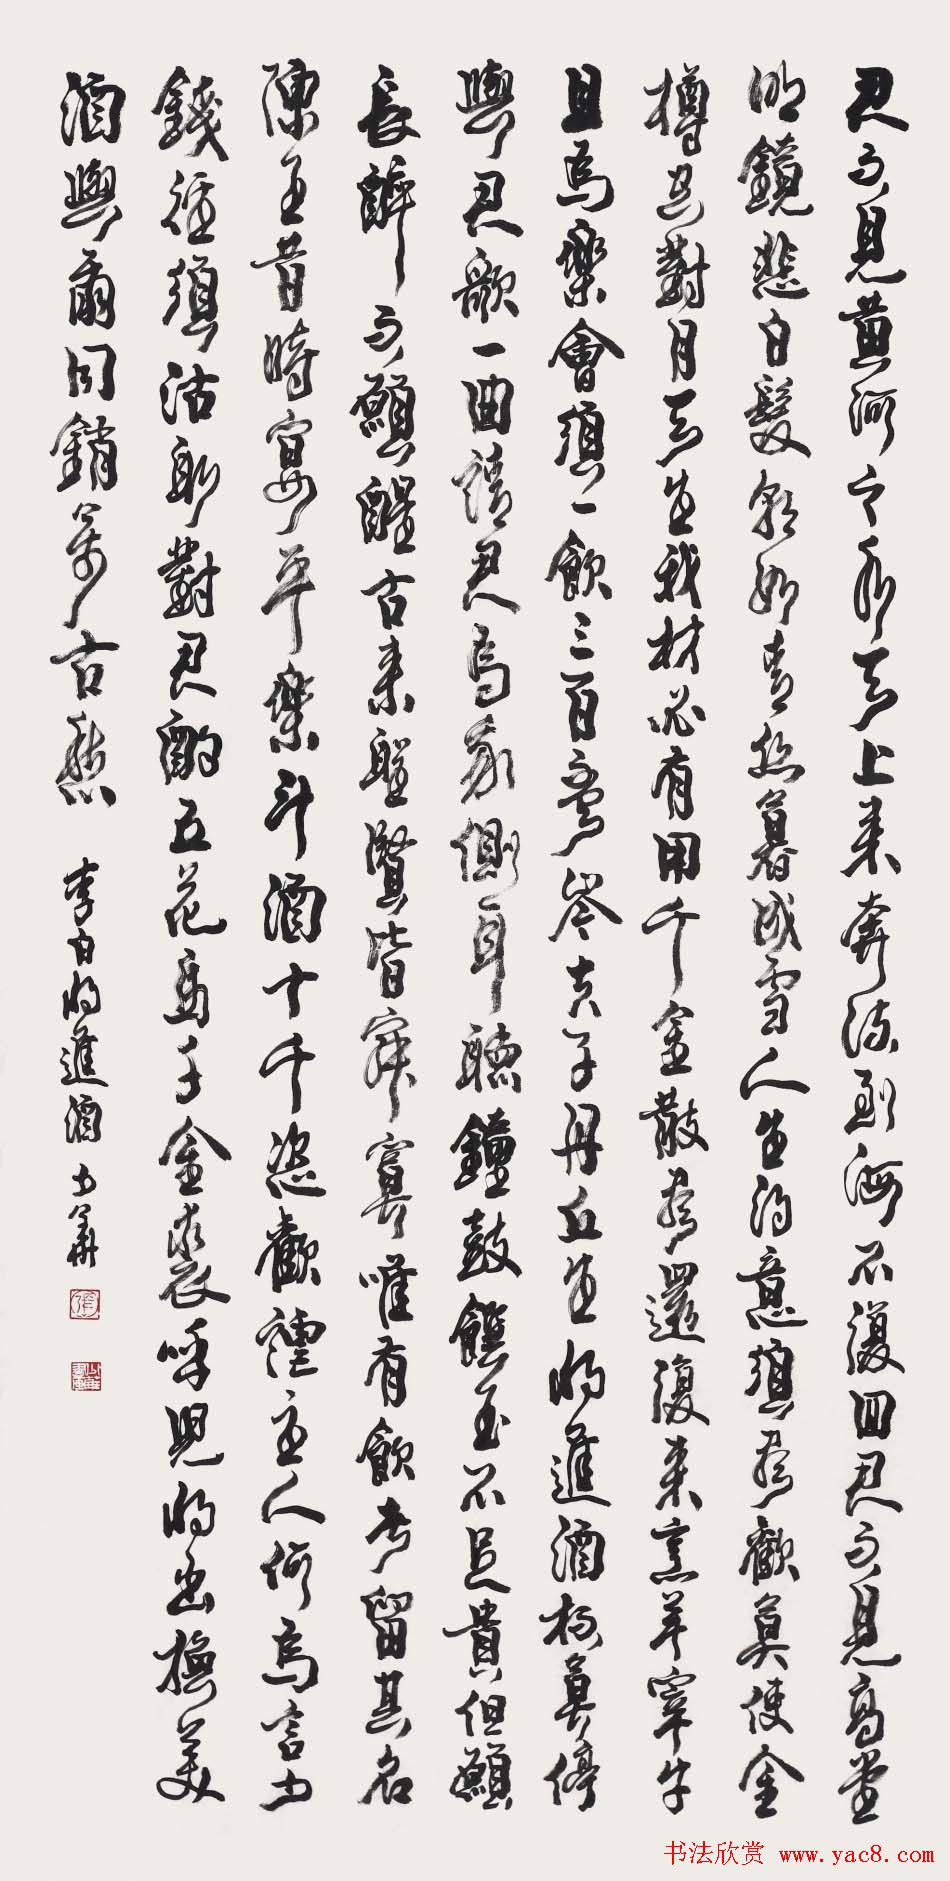 君不見黃河之水天上來奔流到海不復回君不見高堂
明鏡悲白髮朝如青絲暮成雪人生得意須盡歡莫使金
樽空對月天生我材必有用千金散盡還復來烹羊宰牛
且為樂會須一飲三百杯岑夫子丹丘生將進酒杯莫停
與君歌一曲請君為我側耳聽鐘鼓饌玉不足貴但願
長醉不願醒古來聖賢皆寂寞唯有飲者留其名
陳王昔時宴平樂斗酒十千恣歡謔主人何為言少
錢徑須沽取對君酌五花馬千金裘呼兒將出換美
酒與爾同銷萬古愁 李白將進酒 少華
书法欣赏 www.yac8.com